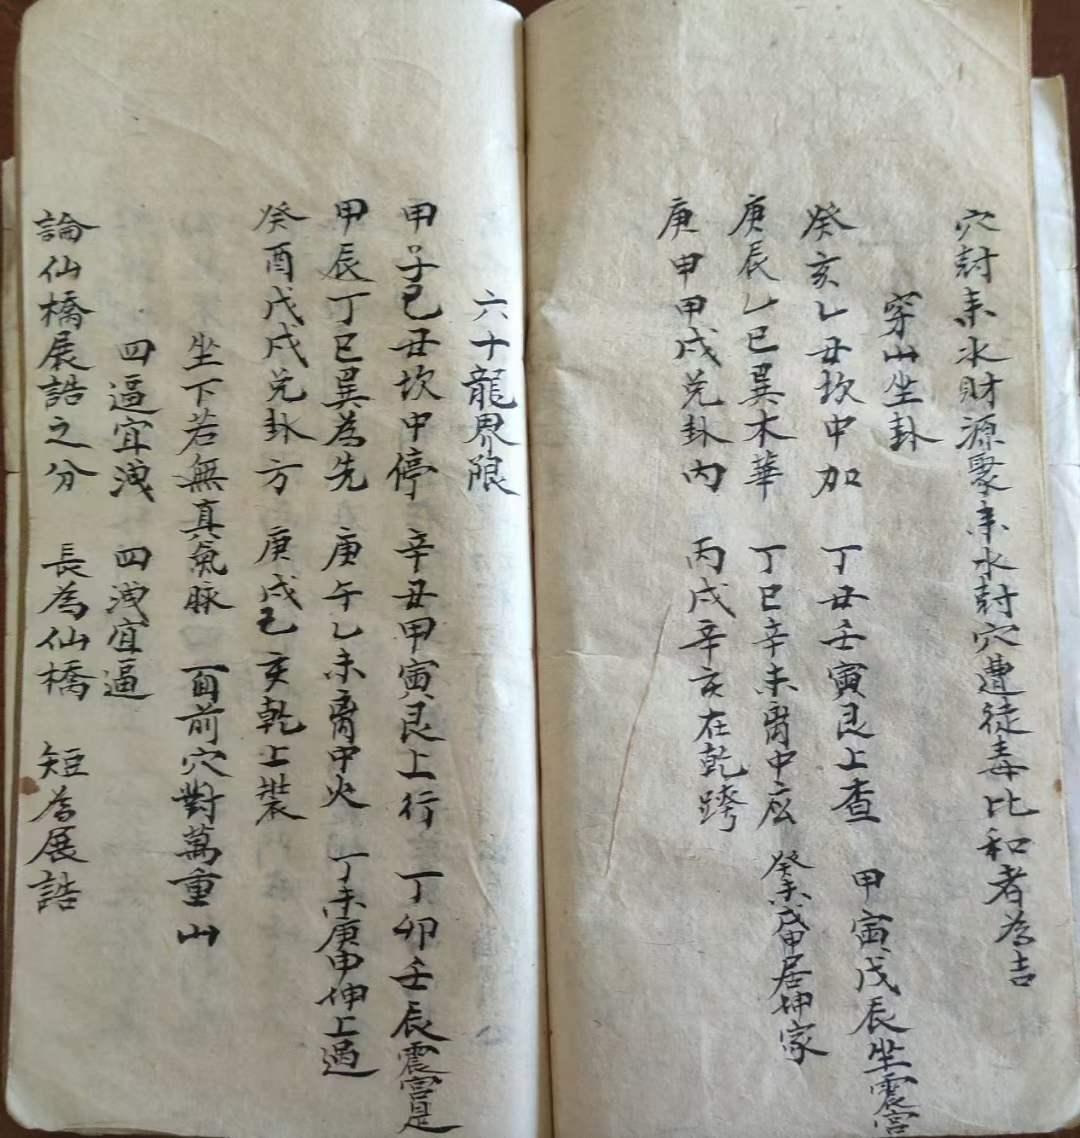 穴封来水財源聚来水封穴遭徒毒比和者為吉
穿山坐卦
癸亥乙丑坎中加 丁丑壬寅艮上查 甲寅戊辰坐震宫
庚辰乙巳巽木華 丁巳辛未离中庅 癸未戊申居坤家
庚申甲戌兑卦内 丙戌辛亥在乾跨
六十龍界限
甲子己丑坎中停 辛丑甲寅艮上行 丁卯壬辰震宫是
甲辰丁巳巽為先 庚午乙未离中火 丁未庚申伸上過
癸酉戊戌兑卦方 庚戌己亥乾上裝
坐下若無真氣脉 面前穴對萬重山
四逼宜洩 四洩宜逼
論仙橋展誥之分 長為仙橋 短為展誥